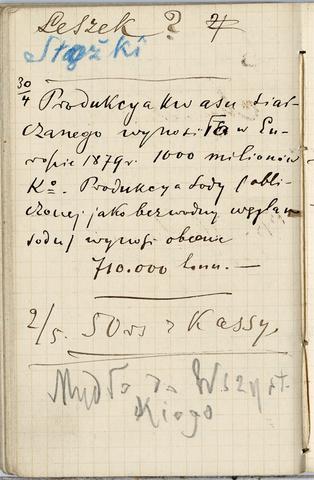 Leszek ? 4
Stążki
30/4 Produkcya kwasu siar-
czanego wynosiła w Eu-
ropie 1879r. 1000 milionów
Ko. Produkcya sody (obli-
czonej jako bezwodny węglan
sodu) wynosi obecnie
710.000 tonn. —
2/5. 50 rs z Kassy.
Mydło do Wszyst-
kiego